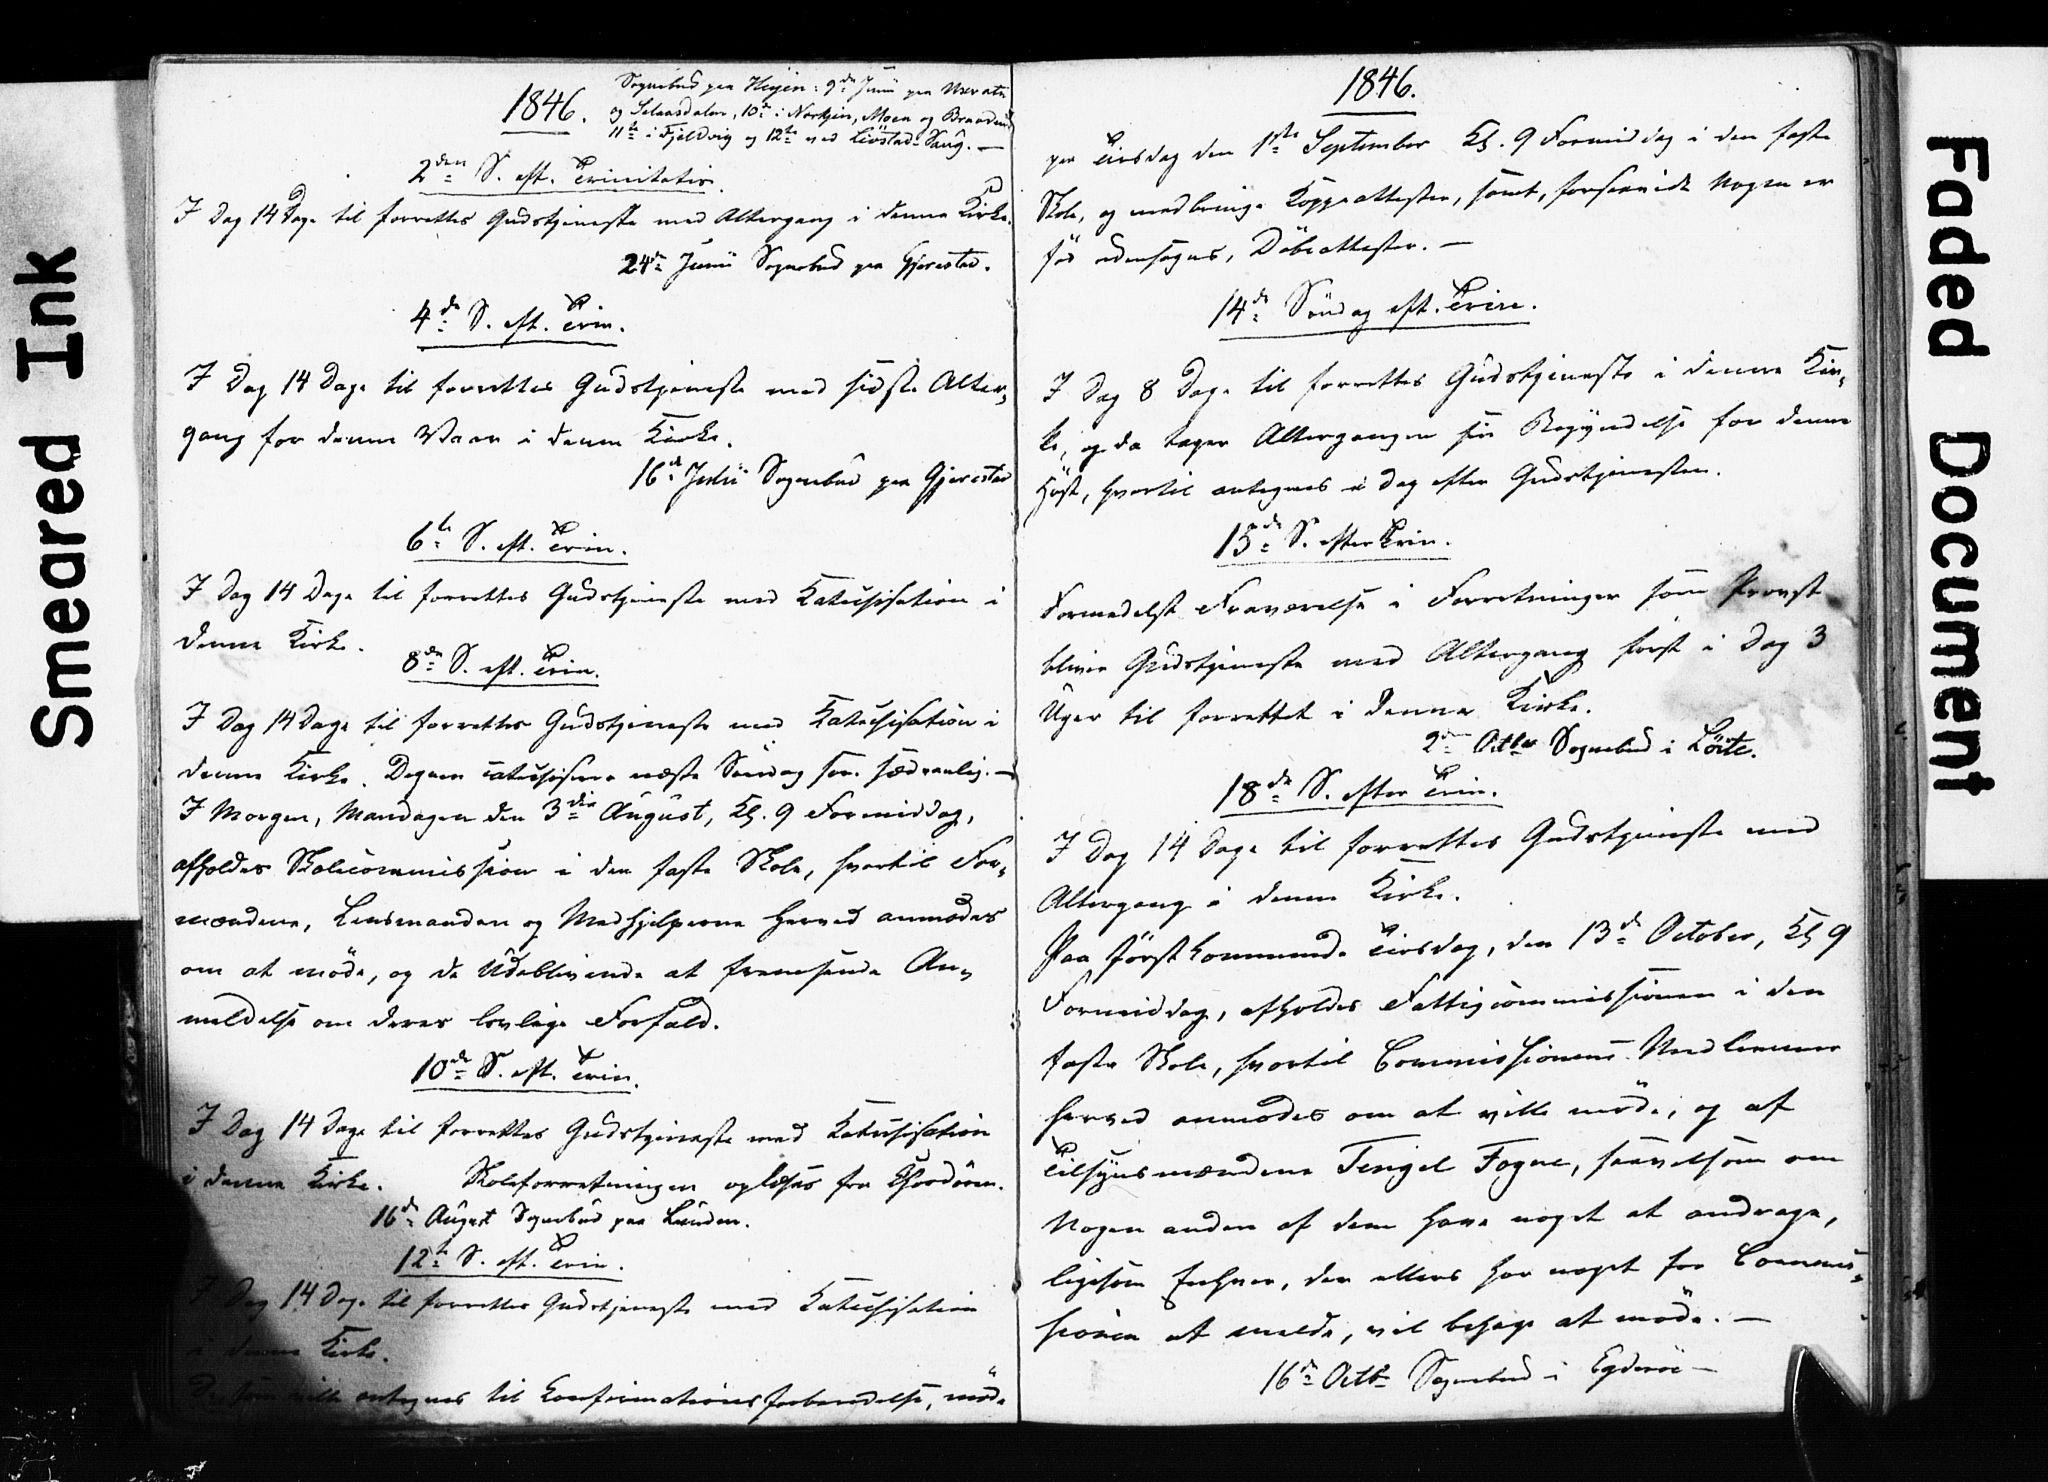 Smeared Ink
1846.
Sognebud paa Hegen: 9de Junii paa
og Selaasdalen, 10de i Norkjin, Moen og
11te i Fjeldvig og 12te ved Livstad-Saug. —
2den S. eft. Trinitatis.
I Dag 14 Dage til forrettes Gudstjeneste med Altergang i denne Kirke.
24de Junii Sognebud paa Gjerestad.
4de S. eft. Trin.
I Dag 14 Dage til forrettes Gudstjeneste med sidste Alter-
gang for denne Vaar i denne Kirke.
16de Julii Sognebud paa Gjerestad
6te S. eft. Trin.
I Dag 14 Dage til forrettes Gudstjeneste med Katechisation i
denne Kirke.
8de S. eft. Trin.
I Dag 14 Dage til forrettes Gudstjeneste med Katechisation i
denne Kirke. Degnen catechiserer næste Søndag som sædvanlig. —
I Morgen, Mandagen den 3die August, Kl. 9 Formiddag,
afholdes Skolecommission i den faste Skole, hvortil For-
mændene, Lensmanden og Medhjelperne herved anmodes
om at møde, og de Udeblivende at fremsende An-
meldelse om deres lovlige Forfald.
10de S. eft. Trin.
I Dag 14 Dage til forrettes Gudstjeneste med Katechisation
i denne Kirke. Skoleforretningen oplæses fra Chordøren.
16de August Sognebud paa Lunden.
12te S. eft. Trin.
I Dag 14 Dage til forrettes Gudstjeneste med Katechisation
i denne Kirke.
De som ville antegnes til Confirmationsforberedelse, møde
1846.
paa Tirsdag den 1ste September Kl. 9 Formiddag i den faste
Skole, og medbringe Koppeattester, samt, forsaavidt Nogen er
fød udensogns, Døbeattester. —
14de Søndag eft. Trin.
I Dag 8 Dage til forrettes Gudstjeneste i denne Kir-
ke, og da tager Altergangen sin Begyndelse for denne
Høst, hvortil antegnes i Dag efter Gudstjenesten.
15de S. efter Trin.
Formedelst Fraværelse i Forretninger som Provst
bliver Gudstjeneste med Altergang først i Dag 3
Uger til forrettet i denne Kirke.
2den Octbr Sognebud i Löite.
18de S. efter Trin.
I Dag 14 Dage til forrettes Gudstjeneste med
Altergang i denne Kirke.
Paa førstkommende Tirsdag, den 13de October, Kl 9
Formiddag, afholdes Fattigcommissionen i den
faste Skole, hvortil Commissionens Medlemmer
herved anmodes om at ville møde, og af
Tilsynsmændene Tengel Fogne, saavelsom om
Nogen anden af dem have noget at andrage,
ligesom Enhver, der ellers har noget for Commis-
sionen at melde, vil behage at møde. —
16de Octb Sognebud i Egderöe —
Faded Document